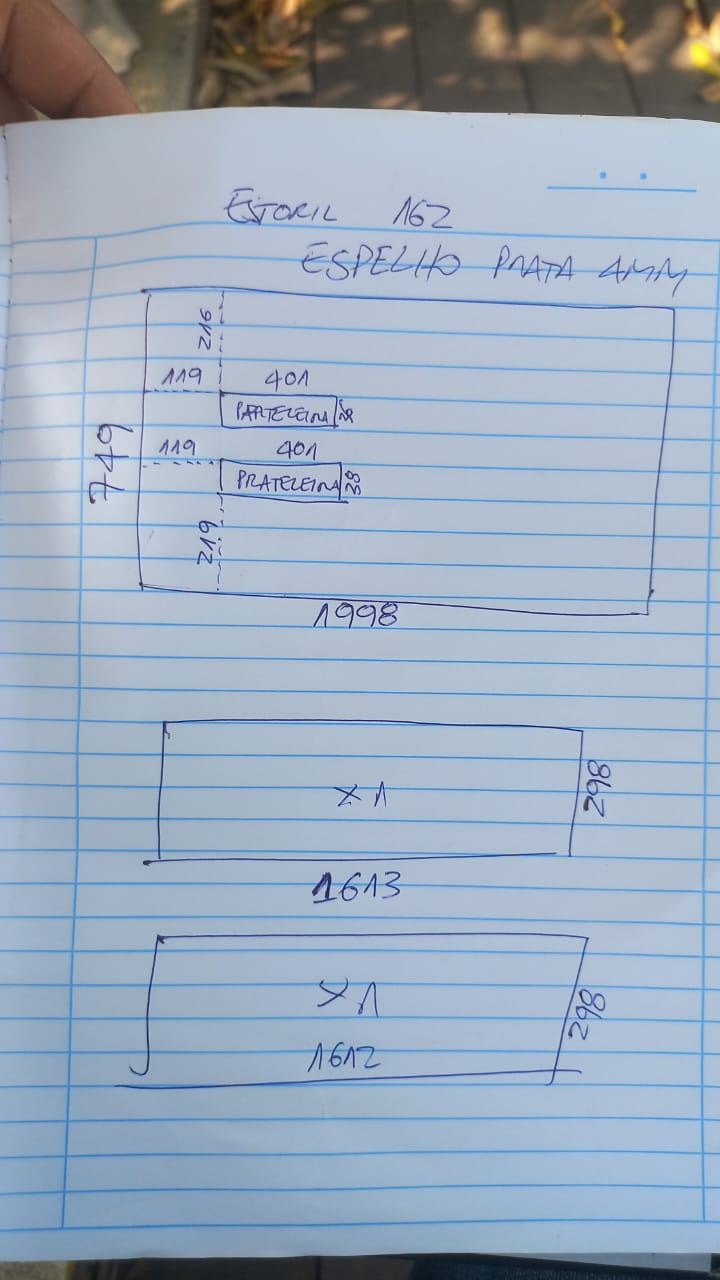 ESTORIL 162
ESPELHO PRATA 4MM
216
119 401
PARTELEIRA 38
119 401
PRATELEIRA 38
749
219
1998
X 1
298
1613
X 1
298
1612